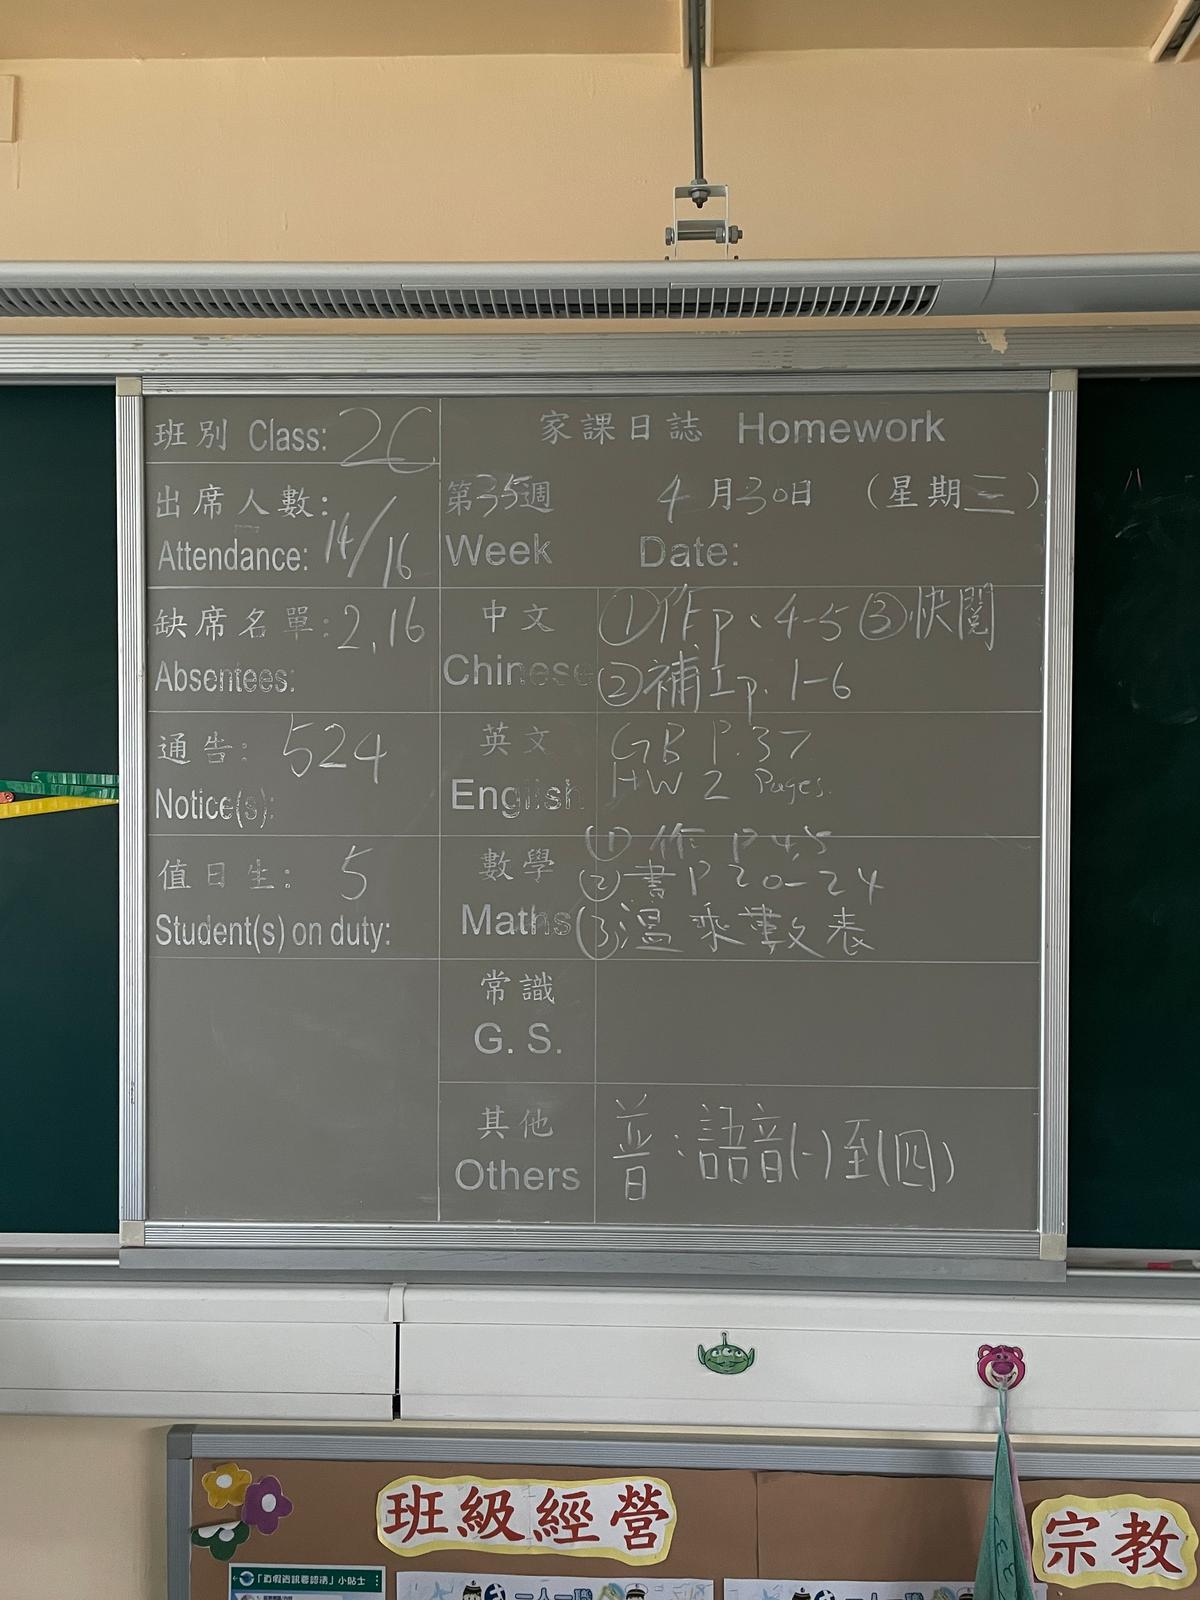 班別 Class: 2C
出席人數:
Attendance: 14/16
缺席名單: 2,16
Absentees:
通告: 524
Notice(s):
值日生: 5
Student(s) on duty:
家課日誌 Homework
第35週 4月30日 (星期三)
Week Date:
中文 ①作p、4-5 ③快閱
Chinese ②補工p. 1-6
英文 GB P.37
English HW 2 Pages.
數學 ① 作 P 4,5
② 書 P 20-24
Maths ③溫乘數表
常識
G. S.
其他
Others 普:語音(一)至(四)
班級經營
宗教
小貼士
一人一職